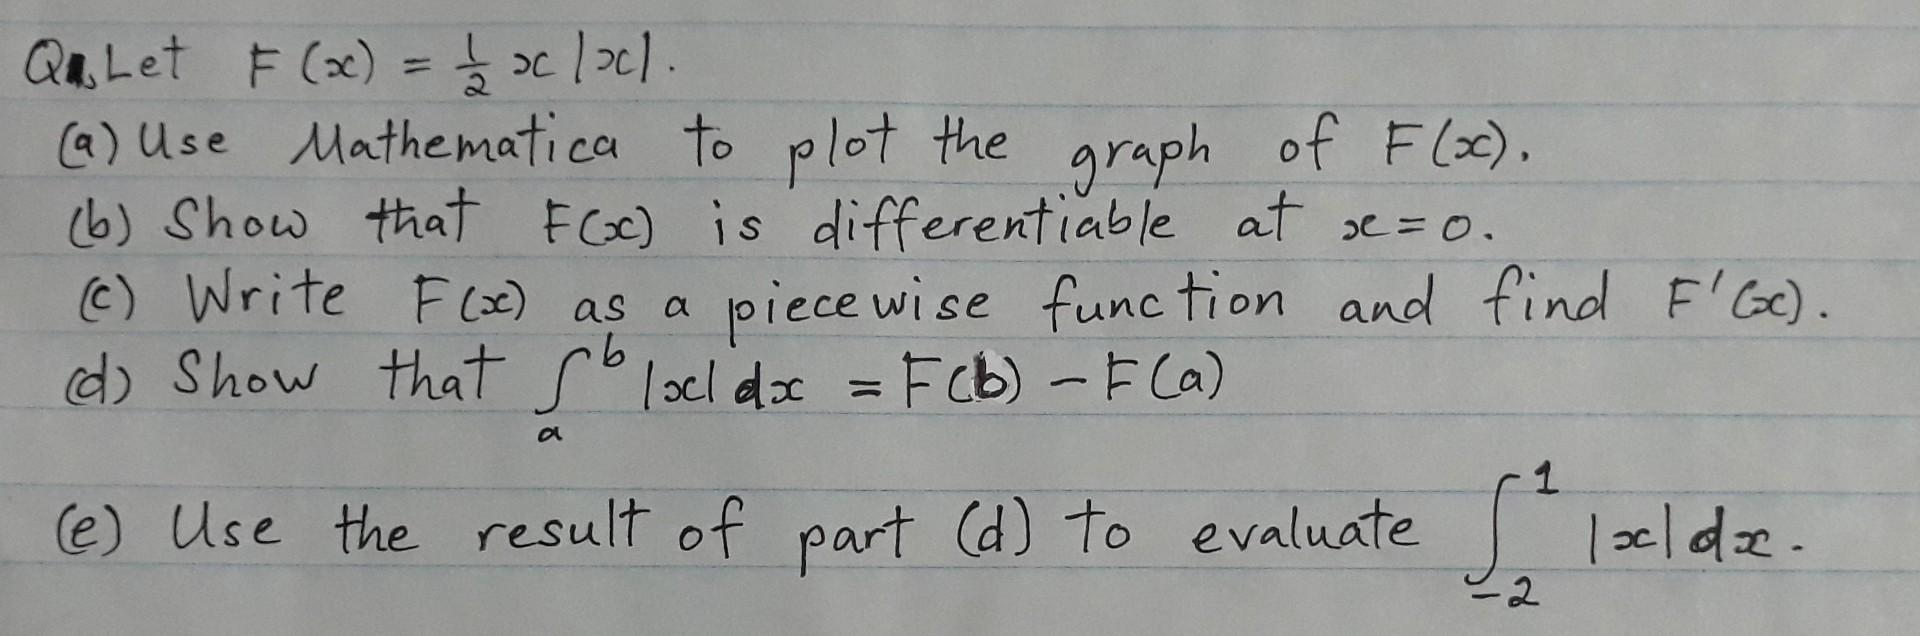 Q1. Let F(x) = 1/2 x |x|.
(a) Use Mathematica to plot the graph of F(x).
(b) Show that F(x) is differentiable at x=0.
(c) Write F(x) as a piecewise function and find F'(x).
(d) Show that ∫_a^b |x| dx = F(b) - F(a)
(e) Use the result of part (d) to evaluate ∫_{-2}^1 |x| dx.